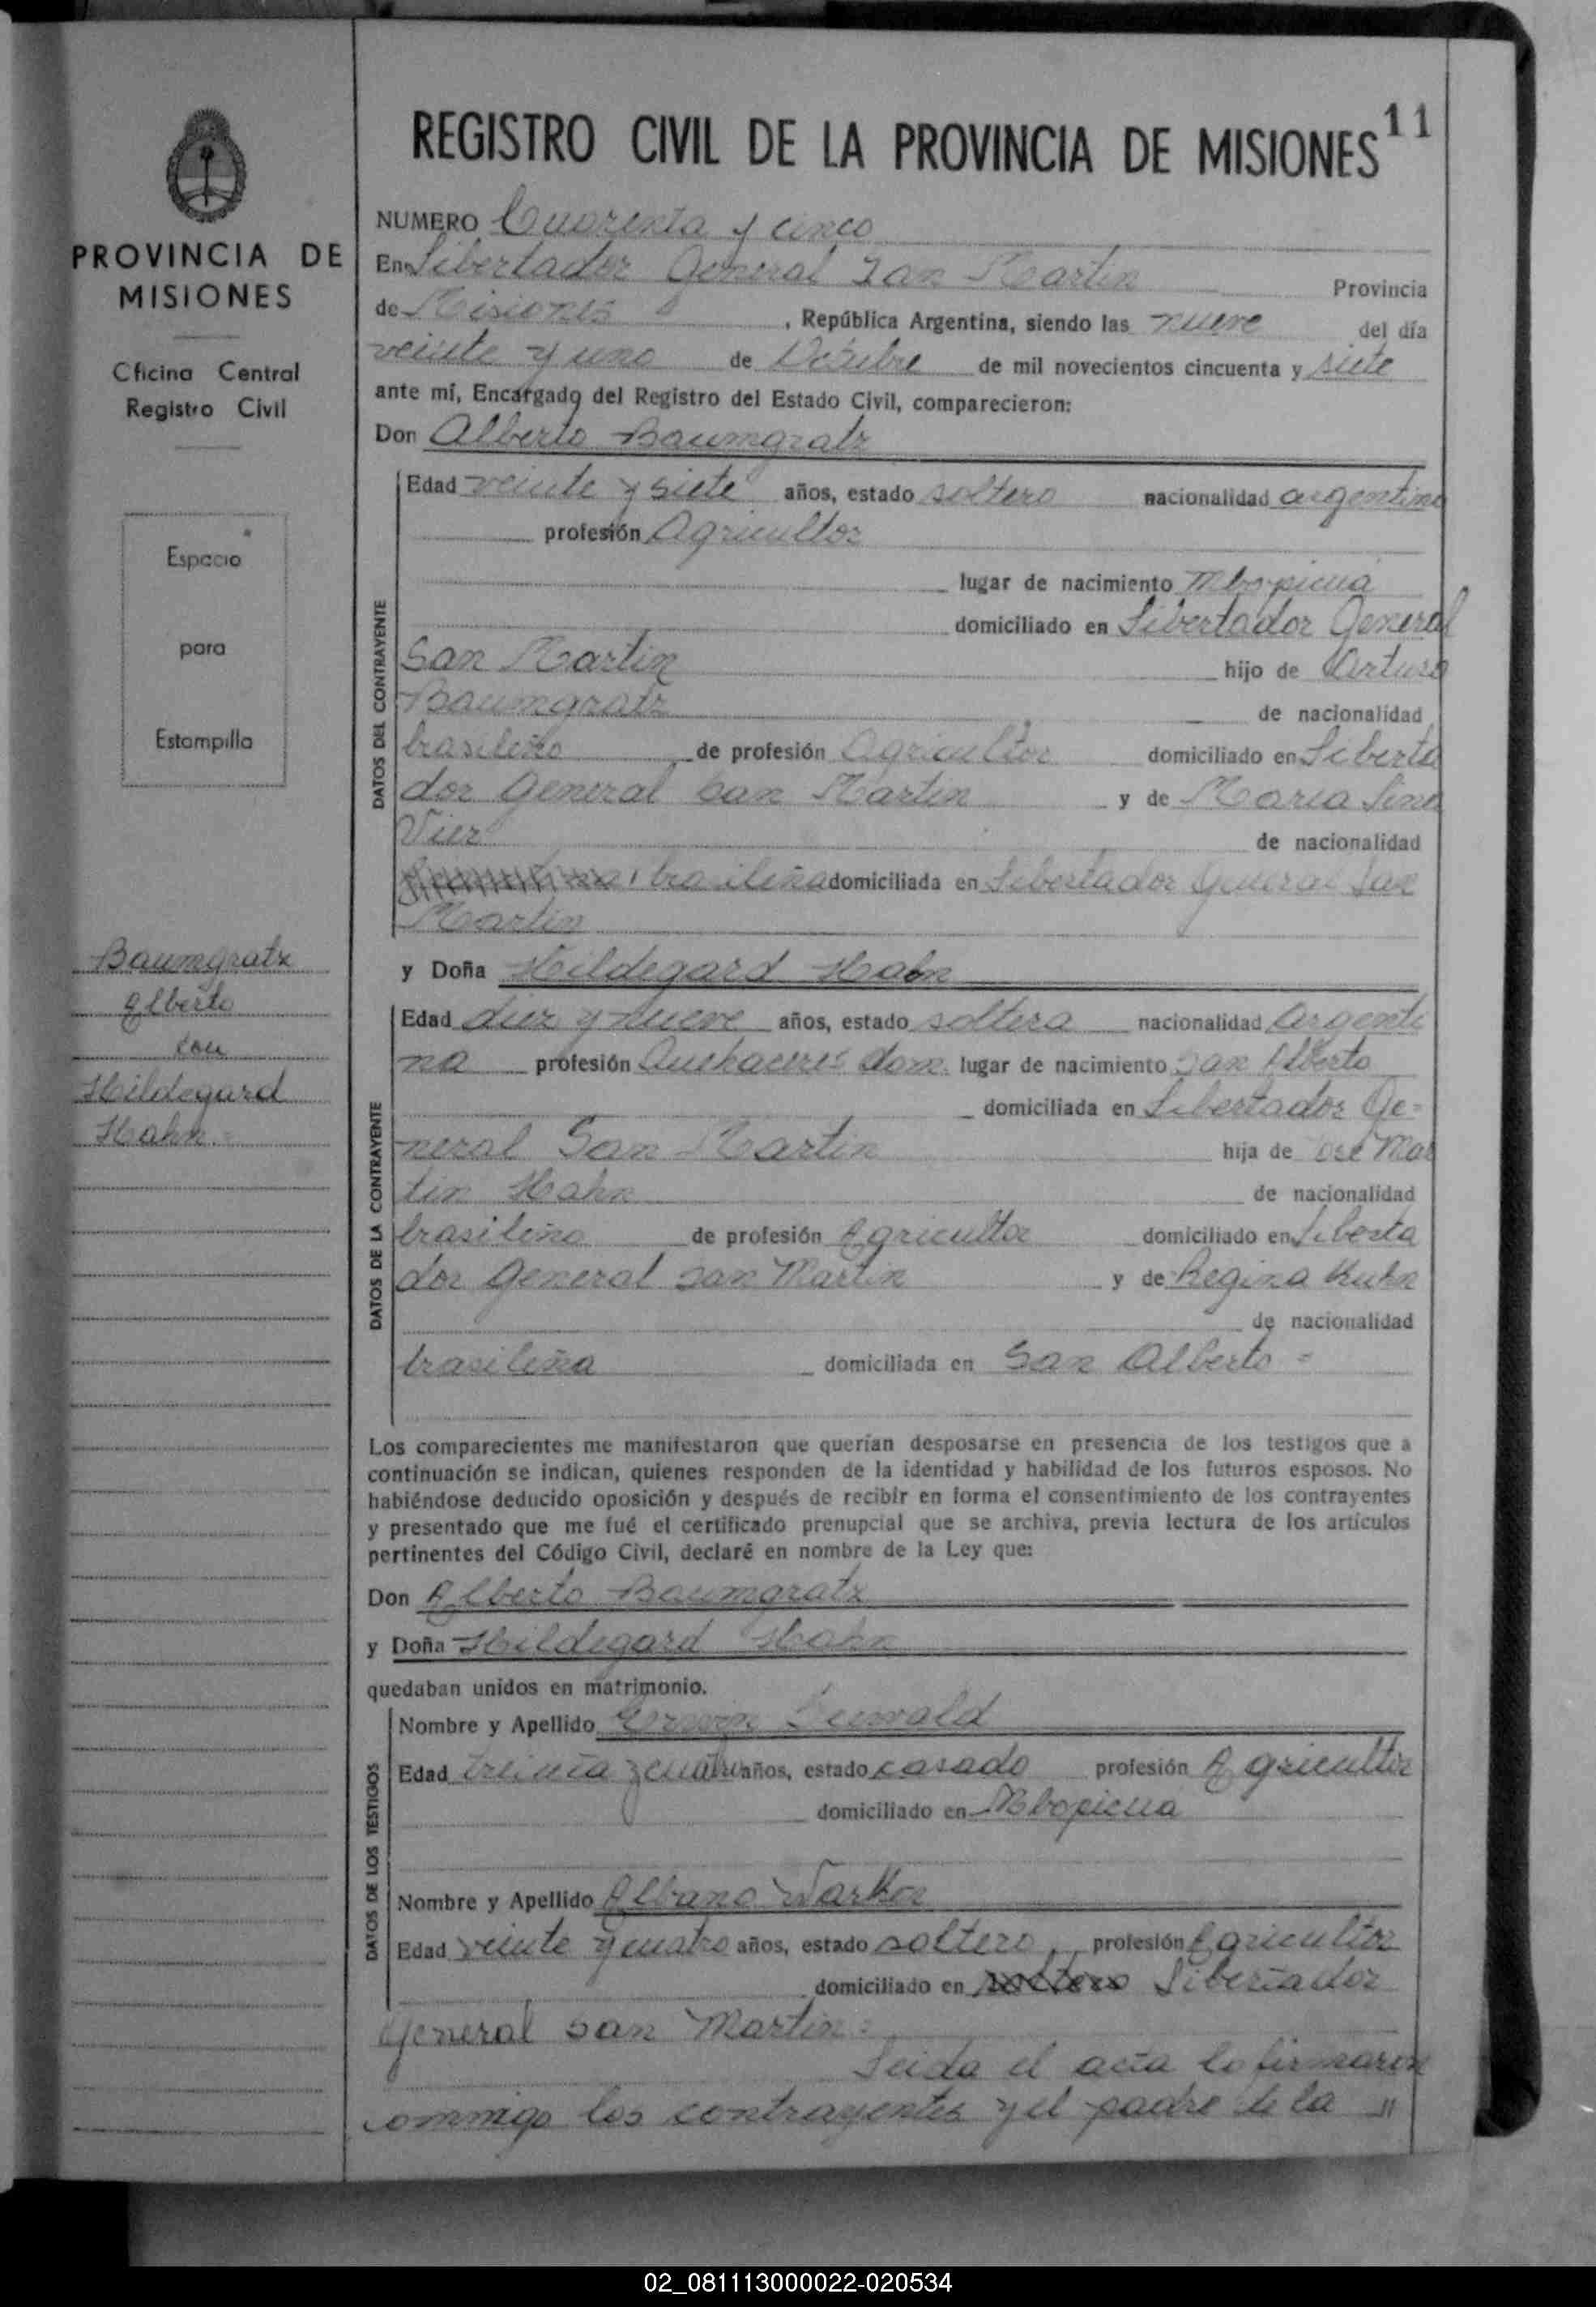 11
REGISTRO CIVIL DE LA PROVINCIA DE MISIONES
PROVINCIA DE
MISIONES
Oficina Central
Registro Civil
Espacio
para
Estampilla
Baumgratz
Alberto
con
Hildegard
Hahn
NUMERO Cuarenta y cinco
En Libertador General San Martin Provincia
de Misiones, República Argentina, siendo las nueve del día
veinte y uno de de mil novecientos cincuenta y siete
ante mí, Encargado del Registro del Estado Civil, comparecieron:
Don Alberto Baumgratz
DATOS DEL CONTRAYENTE
Edad veinte y siete años, estado soltero nacionalidad argentino
profesión Agricultor
lugar de nacimiento Mbopicuá
domiciliado en Libertador General
San Martin hijo de Arturo
Baumgratz de nacionalidad
brasileño de profesión Agricultor domiciliado en Liberta
dor General San Martin y de Maria Lina
Vier de nacionalidad
brasileña domiciliada en Libertador General San
Martin
y Doña Hildegard Hahn
DATOS DE LA CONTRAYENTE
Edad diez y nueve años, estado soltera nacionalidad Argenti
na profesión Quehaceres dom. lugar de nacimiento San Alberto
domiciliada en Libertador Ge=
neral San Martin hija de José Mar
tin Hahn de nacionalidad
brasileño de profesión Agricultor domiciliado en Liberta
dor General San Martin y de Regina Kuhn
de nacionalidad
brasileña domiciliada en San Alberto =
Los comparecientes me manifestaron que querían desposarse en presencia de los testigos que a
continuación se indican, quienes responden de la identidad y habilidad de los futuros esposos. No
habiéndose deducido oposición y después de recibir en forma el consentimiento de los contrayentes
y presentado que me fué el certificado prenupcial que se archiva, previa lectura de los artículos
pertinentes del Código Civil, declaré en nombre de la Ley que:
Don Alberto Baumgratz
y Doña Hildegard Hahn
quedaban unidos en matrimonio.
DATOS DE LOS TESTIGOS
Nombre y Apellido Erwin
Edad treinta y cuatro años, estado casado profesión Agricultor
domiciliado en Mbopicua
Nombre y Apellido Albano Warken
Edad veinte y cuatro años, estado soltero, profesión Agricultor
domiciliado en soltero Libertador
General San Martin=
Leida el acta la firmaron
commigo los contrayentes y el padre de la "
02_081113000022-020534